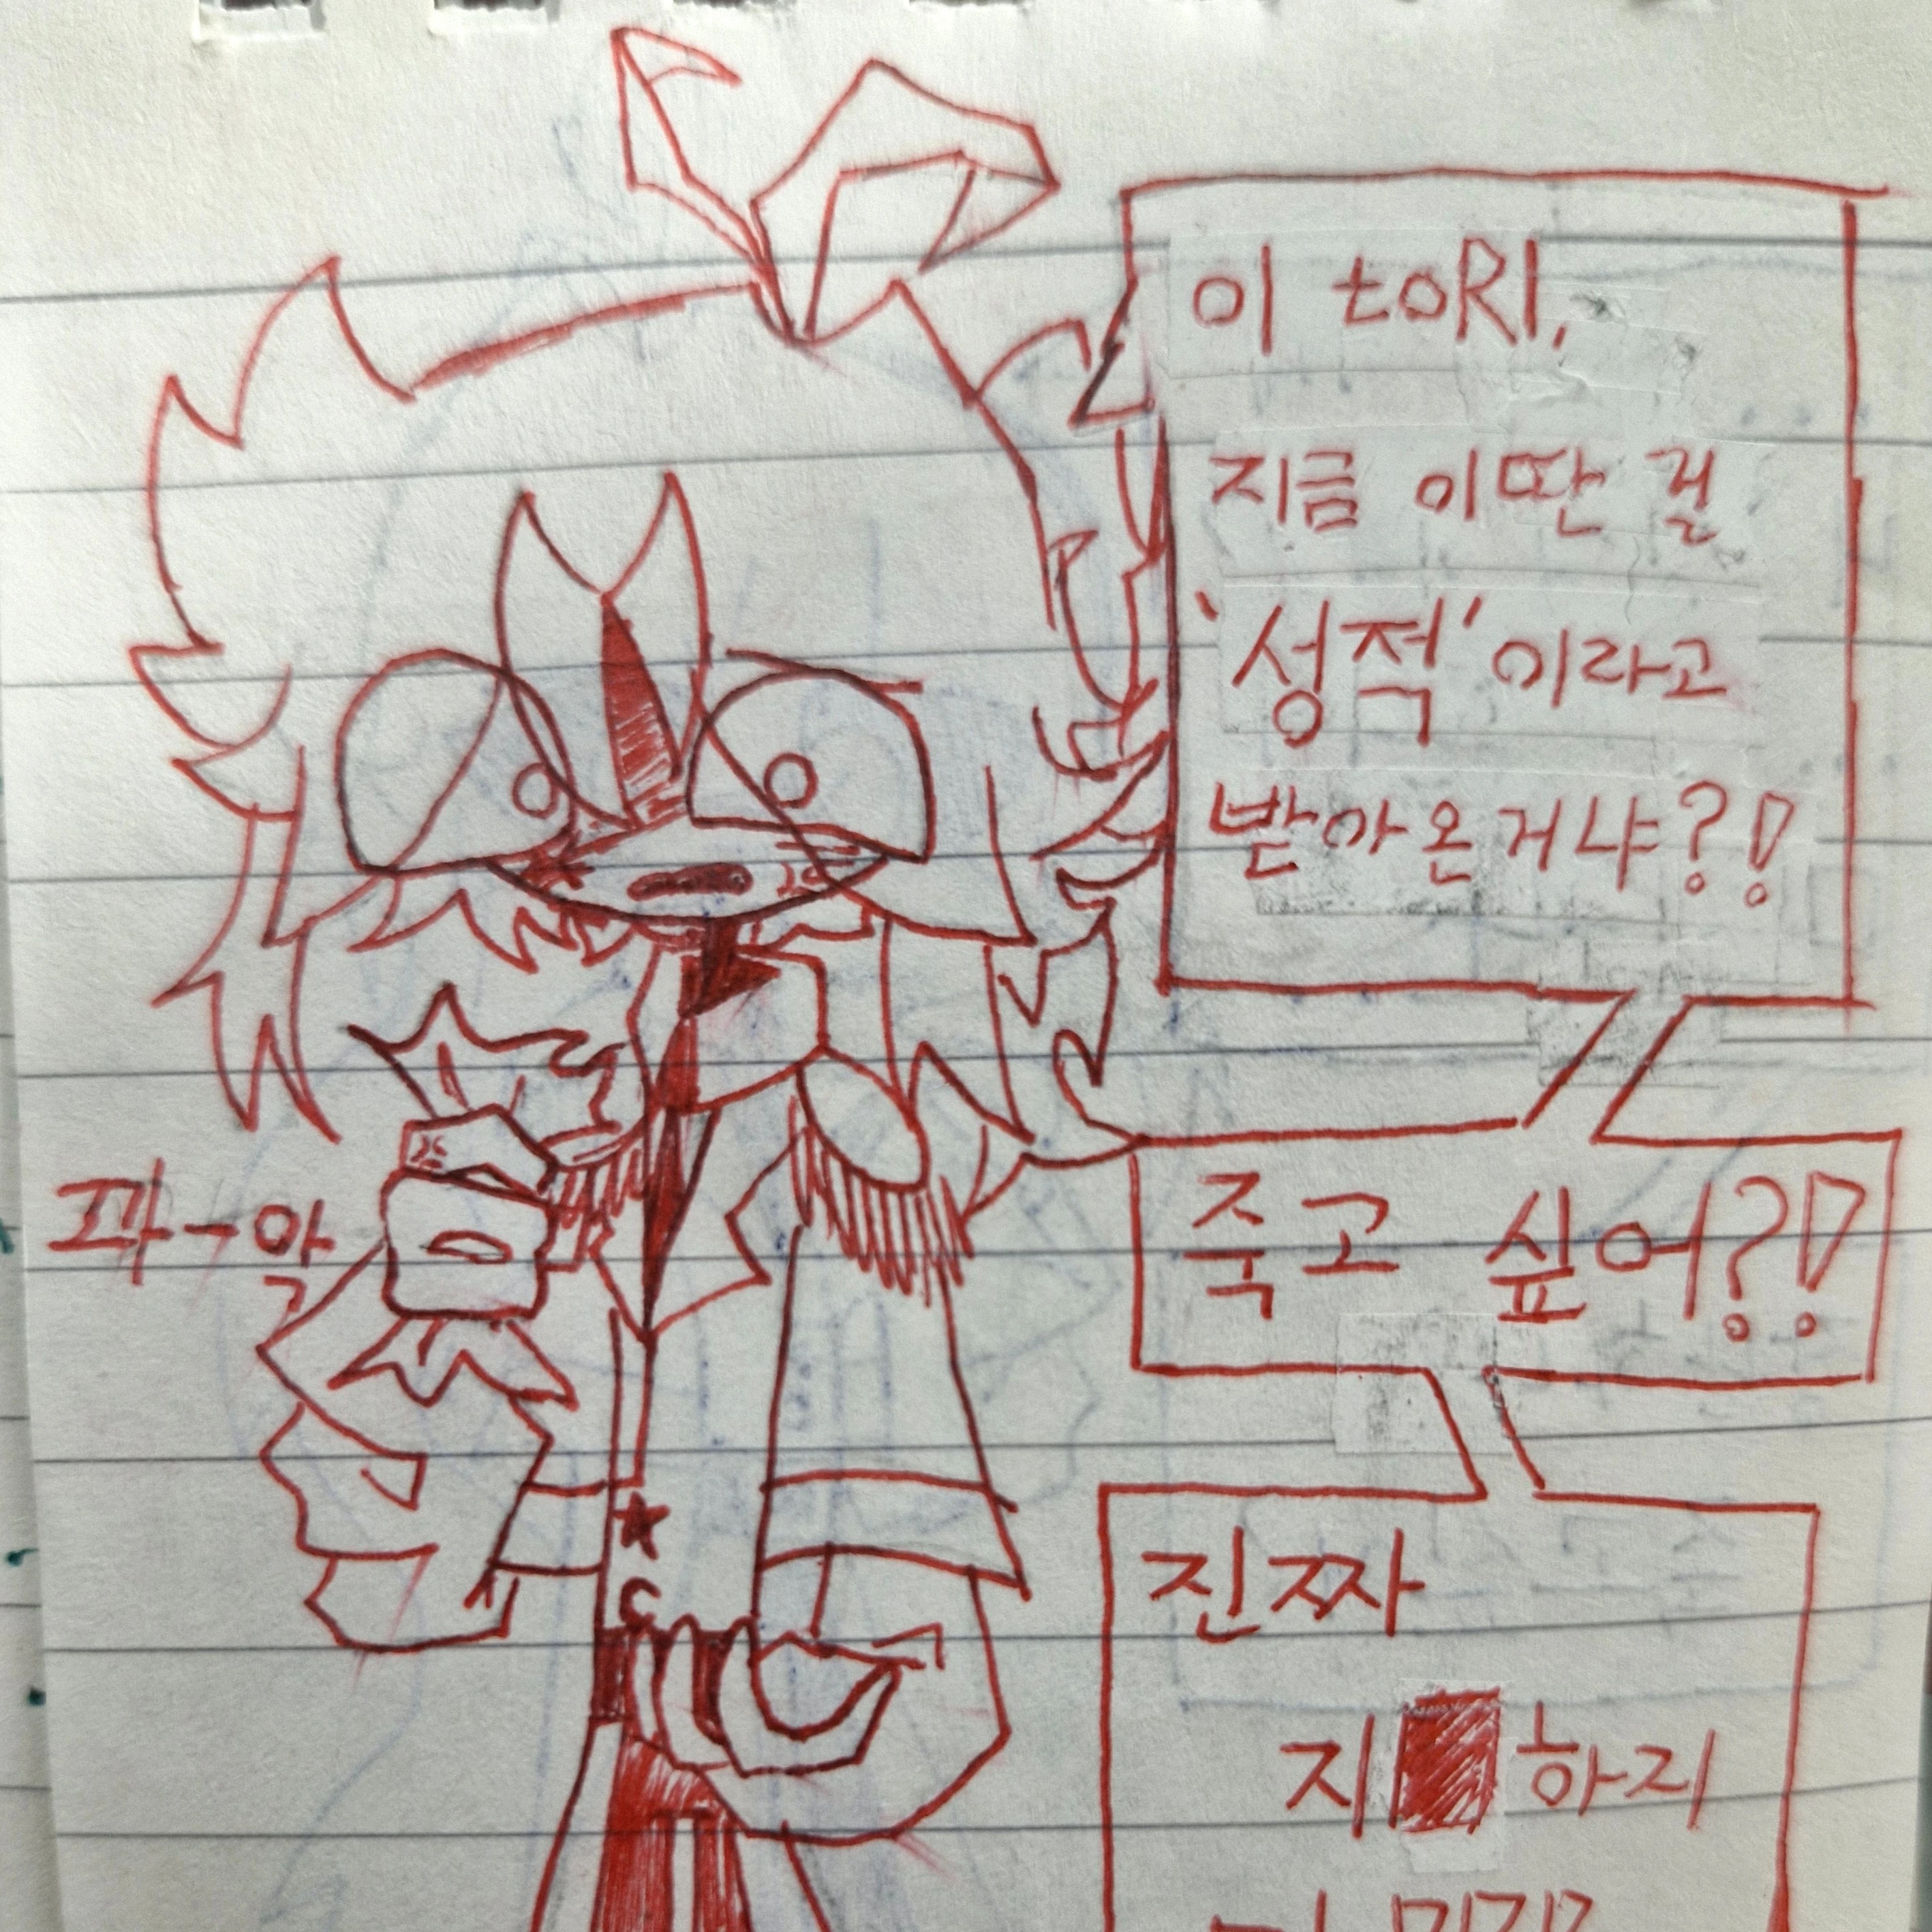 이 toRI,
지금 이딴 걸
'성적'이라고
받아온거냐?!
파-앜
죽고 싶어?!
진짜
지 하지